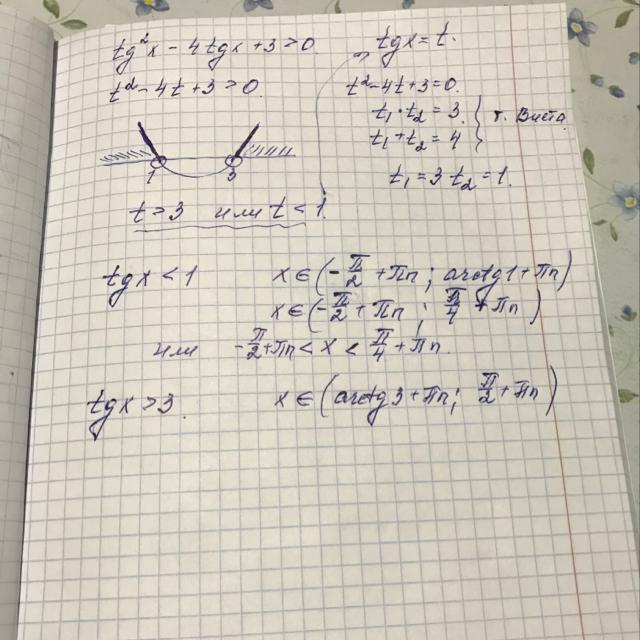 tg²x - 4tgx + 3 > 0
t² - 4t + 3 > 0.
tgx = t.
t² - 4t + 3 = 0.
t₁ · t₂ = 3.
t₁ + t₂ = 4
т. Виета
t₁ = 3 t₂ = 1.
1 3
t > 3 или t < 1.
tgx < 1 x ∈ (-π/2 + πn ; arctg1 + πn)
x ∈ (-π/2 + πn ; π/4 + πn)
или -π/2 + πn < x < π/4 + πn.
tgx > 3. x ∈ (arctg3 + πn ; π/2 + πn)